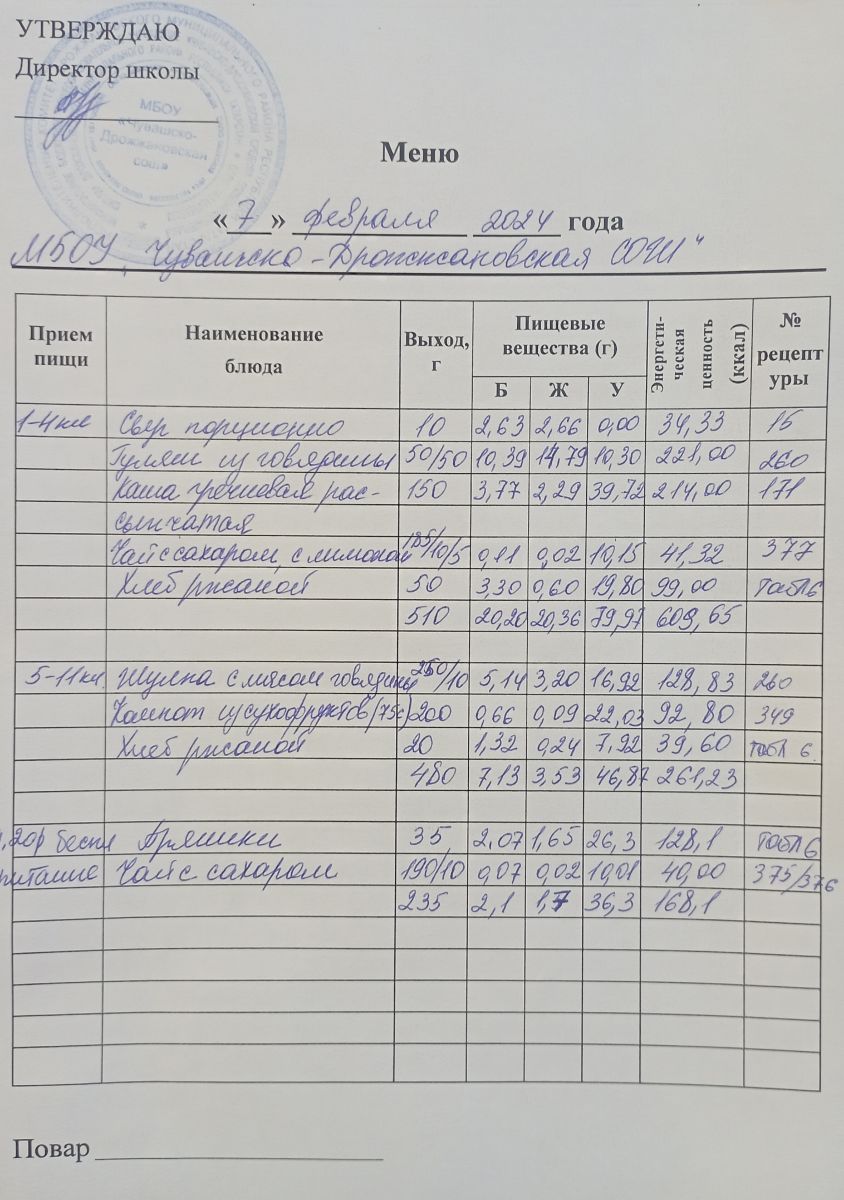 УТВЕРЖДАЮ
Директор школы
МБОУ
«Чувашско-
Дрожжановская
сош»
Меню
«7» февраля 2024 года
МБОУ „Чувашско-Дрожжановская СОШ"
Прием пищи Наименование блюда Выход, г Пищевые вещества (г) Энергети-ческая ценность (ккал) № рецептуры
Б Ж У
1-4 кл Сыр порционно 10 2,63 2,66 0,00 34,33 15
Гуляш из говядины 50/50 10,39 14,79 10,30 221,00 260
Каша гречневая рас- 150 3,77 2,29 39,72 214,00 171
сыпчатая
Чай с сахаром, с лимоном 185/10/5 0,11 0,02 10,15 41,32 377
Хлеб ржаной 50 3,30 0,60 19,80 99,00 табл 6
510 20,20 20,36 79,97 609,65
5-11 кл. Шулпа с мясом говядины 250/10 5,14 3,20 16,92 128,83 260
Компот из сухофруктов (75с) 200 0,66 0,09 22,03 92,80 349
Хлеб ржаной 20 1,32 0,24 7,92 39,60 табл 6.
480 7,13 3,53 46,87 261,23
бесп Пряники 35 2,07 1,65 26,3 128,1 табл 6
питание Чай с сахаром 190/10 0,07 0,02 10,01 40,00 375/376
235 2,1 1,7 36,3 168,1
Повар